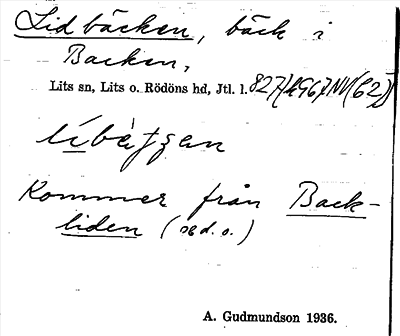 Lidbäcken, bäck i
Backen,
Lits sn, Lits o. Rödöns hd, Jtl. l. 827/1967NV(62)
Kommer från Back-
liden (se d. o.)
A. Gudmundson 1936.